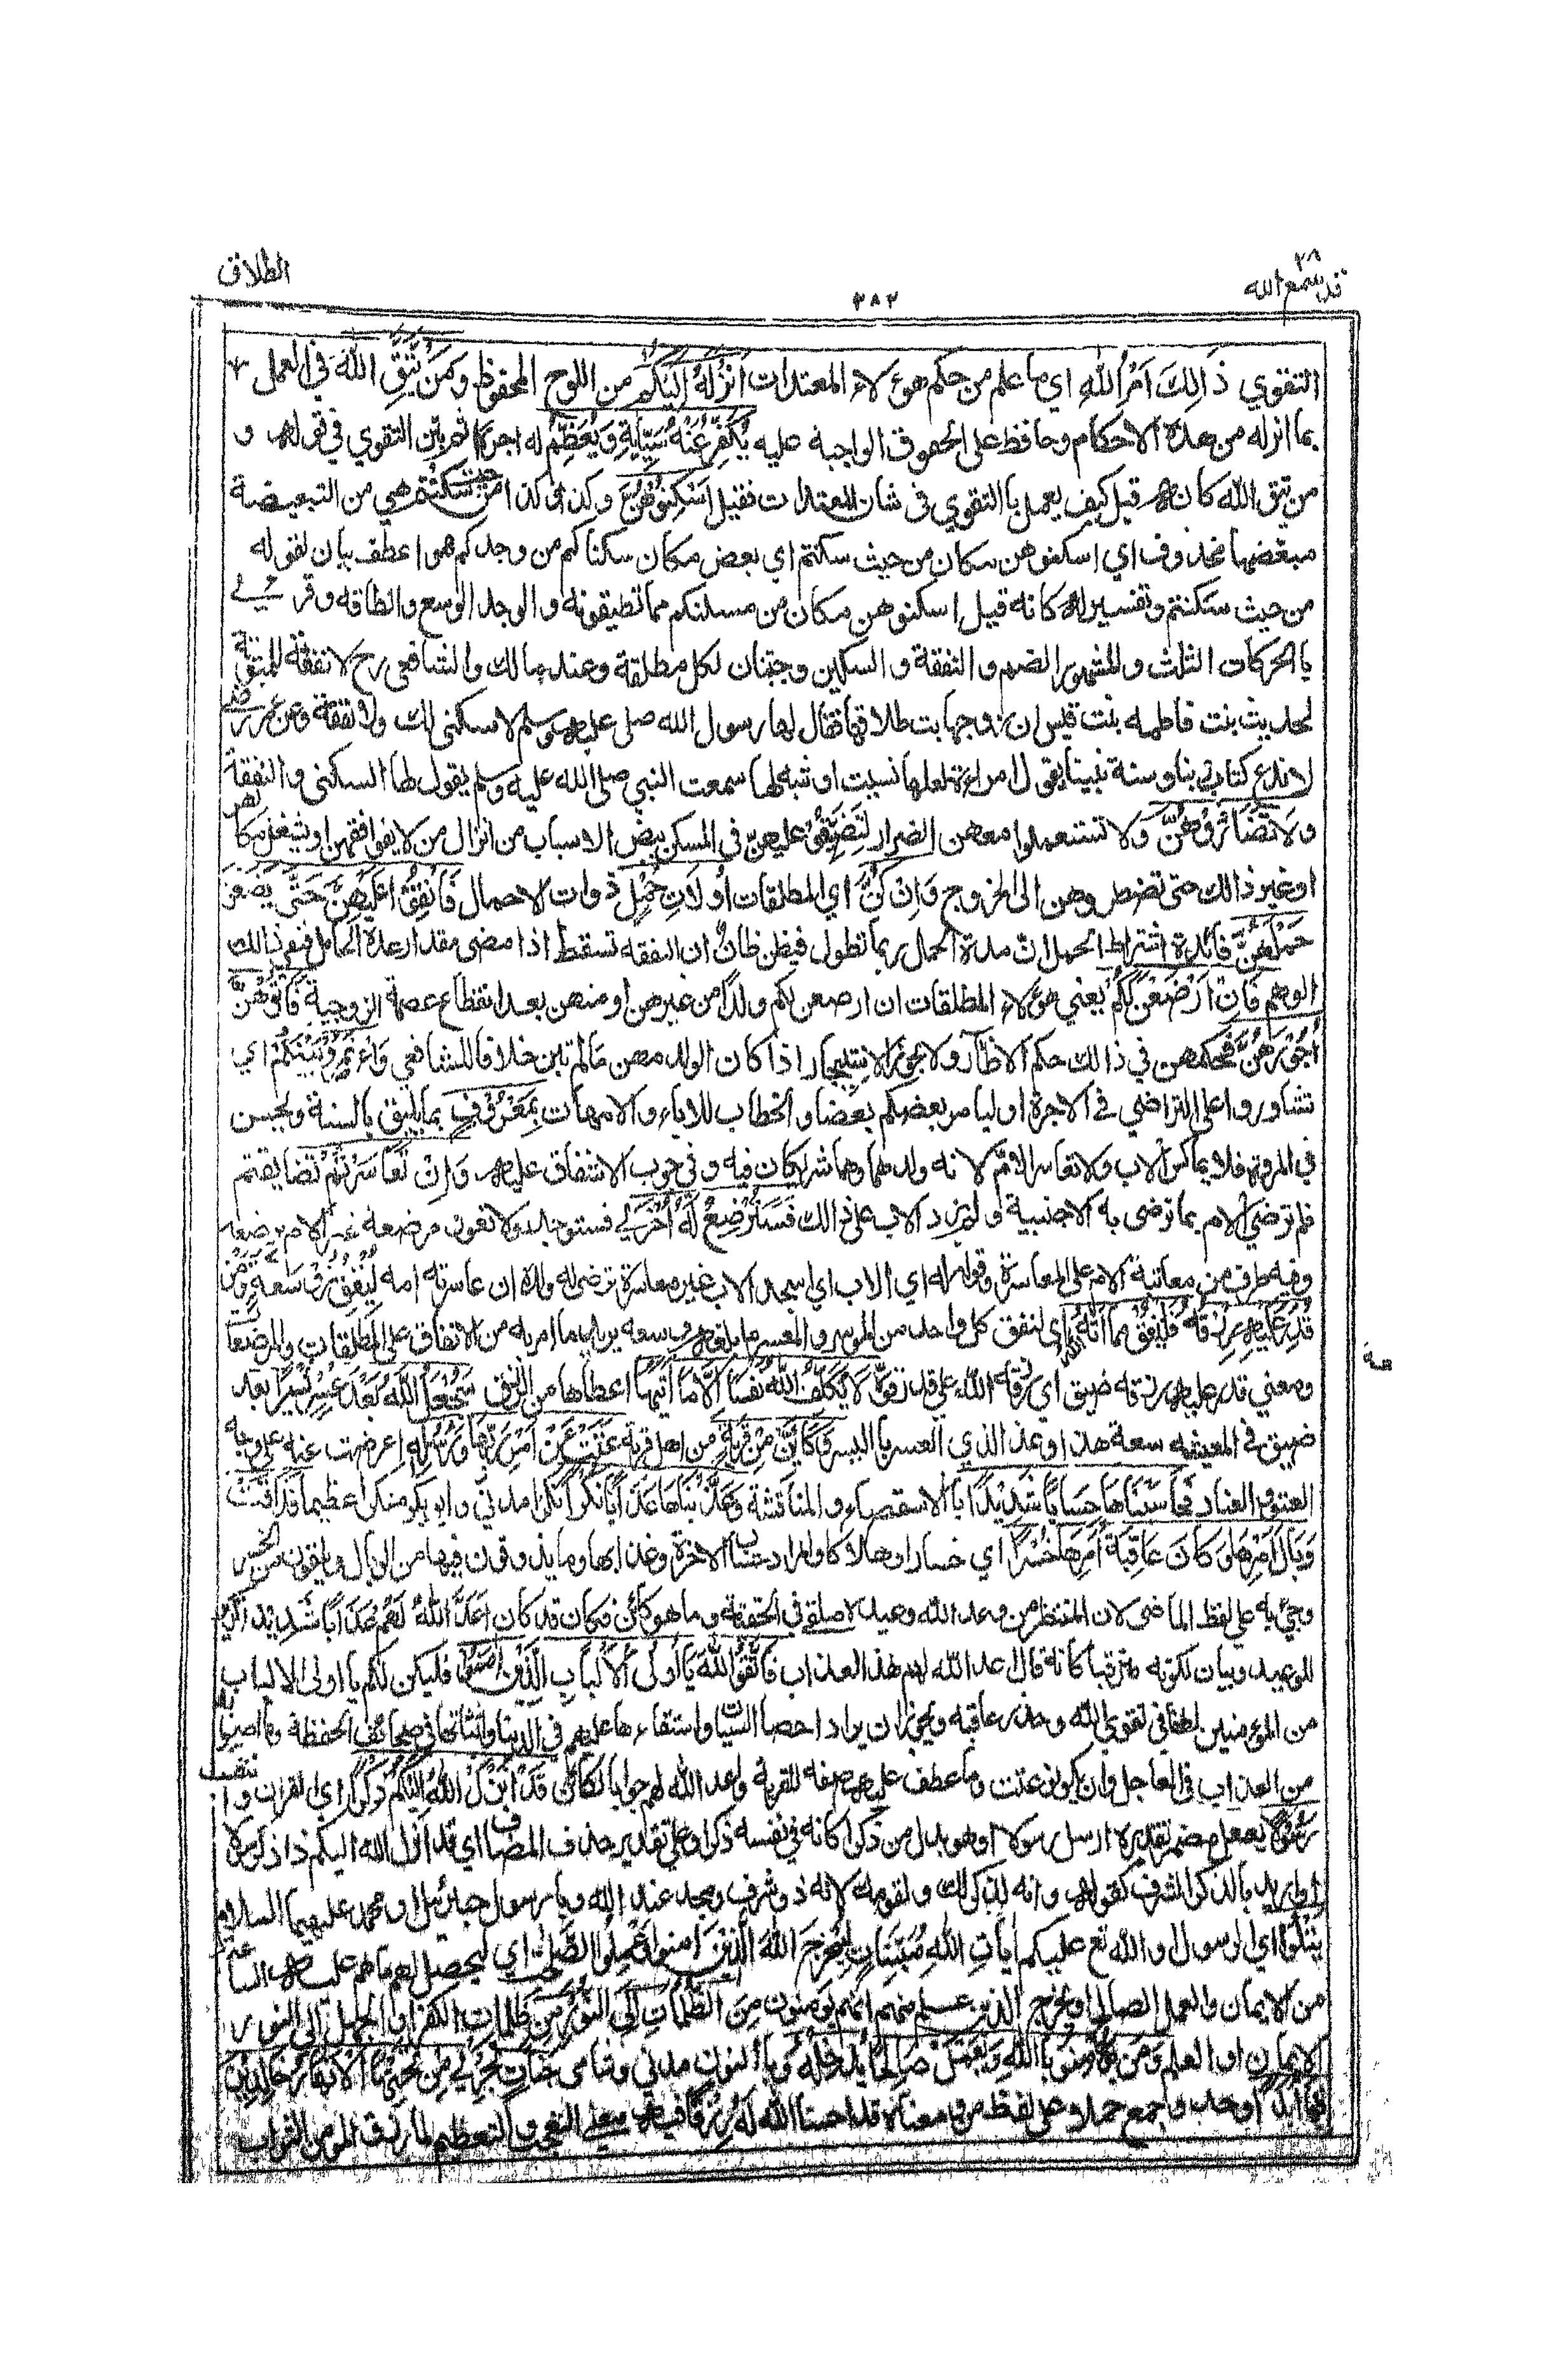 الطلاق
٢٨
قد سمع الله
٣٨٢
التقوي ذَالِكَ اَمْرُ اللهِ اي ما علم من حكم هؤلاء المعتدات اَنْزَلَهٗ اِلَيْكُمْ من اللوح المحفوظ وَمَنْ يَّتَّقِ اللهَ في العمل
بما انزله من هذه الاحكام وحافظ على الحقوق الواجبة عليه يُكَفِّرْ عَنْهُ سَيِّاٰتِهٖ وَيُعْظِمْ لَهٗ اجرا ثم بين التقوي في قوله و
من يتق الله كانه قيل كيف يعمل با التقوي في شان المعتدات فقيل اَسْكِنُوْهُنَّ وكذا وكذا مِنْ حيث سَكَنْتُمْ هي من التبعيضة
مبعضها محذوف اي اسكنوهن مكان من حيث سكنتم اي بعض مكان سكناكم من وجدكم هو اعطف بيان لقوله
من حيث سَكنتم وتفسير له كانه قيل اسكنوهن مكان من مسكنكم مما تطيقونه والوجد الوسع والطاقه وقرئ
با الحركات الثلث والمشهور الضم والنفقة و السكنى وجبتان لكل مطلقة وعند مالك والشافعي رح لا نفقة للمبتوتة
لحديث بنت فاطمه بنت قيس ان زوجها بت طلاقها فقال لها رسول الله صلى عليه وسلم لا سكنى لك ولا نفقة وعن عمر رض
لا ندع كتاب ربنا وسنة نبينا بقول امراءة لعلها نسيت او شبه لها سمعت النبي صلى الله عليه وسلم يقول لها السكنى و النفقة
وَلَا تُضَآرُّوْهُنَّ ولا تستعملوا معهن الضرار لِتُضَيِّقُوْا عليهنّ في المسكن ببعض الاسباب من انزال من لا يوافقهن او يشغل مكانهن
او غير ذالك حتى تضطروهن الى الخروج وَاِنْ كُنَّ اي المطلقات اُولَاتِ حَمْلٍ ذوات الاحمال فَاَنْفِقُوْا عَلَيْهِنَّ حَتّٰى يَضَعْنَ
حَمْلَهُنَّ فائدة اشتراط الحمل ان مدة الحمل ربما تطول فيظن ظان ان النفقه تسقط اذا مضى مقدار عدة الحائل فنفي ذالك
الوهم فَاِنْ اَرْضَعْنَ لَكُمْ يعني هؤلاء المطلقات ان ارضعن لكم ولدا من غيرهن او منهن بعد انقطاع عصمة الزوجية فَاٰتُوْهُنَّ
اُجُوْرَهُنَّ فحكمهن في ذالك حكم الاظآر ولا يجوز الاستيجار اذا كان الولد منهن ما لم تبن خلافا للشافعي وَاْتَمِرُوْا بَيْنَكُمْ اي
تشاوروا على التراضي في الاجرة او ليامر بعضكم بعضا والخطاب للاباء والامهات بِمَعْرُوْفٍ بما يليق بالسنة ويحسن
في المروة فلا يماكس الاب ولا تعاسر الامّ لانه ولدهما وهما شريكان فيه وفي وجوب الانفاق عليه وَاِنْ تَعَاسَرْتُمْ تضايقتم
فلم ترضى الام بما ترضى به الاجنبية ولم يزد الاب على ذالك فَسَتُرْضِعُ لَهٗٓ اُخْرٰى فستوجد ولا تعوز مرضعة غير الام ترضعه
وفيه طرف من معاتبة الام على المعاسرة وقوله له اي الاب اي سيجد الاب غير معاسرة ترضع له ولده ان عاسرته امه لِيُنْفِقْ ذُوْ سَعَةٍ وَمَنْ
قُدِرَ عَلَيْهِ رِزْقُهٗ فَلْيُنْفِقْ مِمَّا اٰتٰهُ الله اي لينفق كل واحد من الموسر و المعسر ما بلغه وسعه يريد ما امر به من الانفاق على المطلقات والمرضعات
ومعنى قدر عليه رزقه ضيق اي رزقه الله على قدر قوته لَا يُكَلِّفُ اللهُ نَفْسًا اِلَّا مَا اٰتٰىهَا اعطاها من الرزق سَيَجْعَلُ اللهُ بَعْدَ عُسْرٍ يُّسْرًا بعد
ضيق في المعيشه سعة هذا وعد لذي العسر با اليسر وَكَاَيِّنْ مِنْ قَرْيَةٍ من اهل قرية عَتَتْ عَنْ اَمْرِ رَبِّهَا وَرُسُلِهٖ اعرضت عنه على وجه
العتو و العناد فَحَاسَبْنَاهَا حِسَابًا شَدِيْدًا با الاستقصاء و المناقشة وَعَذَّبْنَاهَا عَذَابًا نُّكْرًا نكرا مدني و ابو بكر منكرا عظيما فَذَاقَتْ
وَبَالَ اَمْرِهَا وَ كَانَ عَاقِبَةُ اَمْرِهَا خُسْرًا اي خسارا وهلاكا والمراد حساب الاخرة وعذابها وما يذوقون فيها من الوبال ويلقون من الخسر
وجيء به على لفظ الماضى لان المنتظر من وعد الله وعيده ملقى في الحقيقة وما هو كائن فكان قد كان اَعَدَّ اللهُ لَهُمْ عَذَابًا شَدِيْدًا تكرير
للوعيد وبيان لكونه مترقبا كانه قال اعد الله لهم هذا العذاب فَاتَّقُوا اللهَ يَا اُولِى الْاَلْبَابِ الَّذِيْنَ اٰمَنُوْا فليكن لكم يا اولى الالباب
من المؤمنين لطفا في تقوى الله وحذر عاقبه ويجوز ان يراد احصا السيئات واستقصاءها عليهم في الدنيا واثباتها في صحائف الحفظة وما اصيبوا به
من العذاب في العاجل وان يكون عتت وما عطف عليه صفه للقرية واعد الله لهم جوابا لكاين قَدْ اَنْزَلَ اللهُ اِلَيْكُمْ ذِكْرًا اي القران و انتصب
رَسُوْلًا بفعل مضمر تقديره ارسل رسولا او هو بدل من ذكرا كانه في نفسه ذكرا وعلى تقدير حذف المضاف اي قد انزل الله اليكم ذا ذكر رسولا
او اريد بالذكر الشرف كقوله وانه لذكر لك ولقومك لانه ذو شرف ومجد عند الله وبا رسول جبرئيل او محمد عليهما السلام
يَتْلُوْا اي الرسول او الله تع عليكم اٰيَاتِ اللهِ مُبَيِّنَاتٍ لِيُخْرِجَ اللهُ الَّذِيْنَ اٰمنوا وَعَمِلُوا الصّٰلِحٰتِ اي ليحصل لهم ما هم عليه الساعة
من الايمان والعمل الصالح او ليخرج الذين علم منهم انهم يؤمنون مِنَ الظُّلُمَاتِ اِلَى النُّوْرِ من ظلمات الكفر او الجهل الى النور
الايمان او العلم وَمَنْ يُؤْمِنْ بِاللهِ وَيَعْمَلْ صَالِحًا يُدْخِلْهُ وبا النون مدني وشامى جَنَّاتٍ تَجْرِيْ مِنْ تَحْتِهَا الْاَنْهَارُ خَالِدِيْنَ
فِيْهَا اَبَدًا وحد وجمع حملا على لفظ من ومعناه قد احسن الله لَهٗ رِزْقًا فيه معنى التعجب و التعظيم لما رزق المومن الثواب